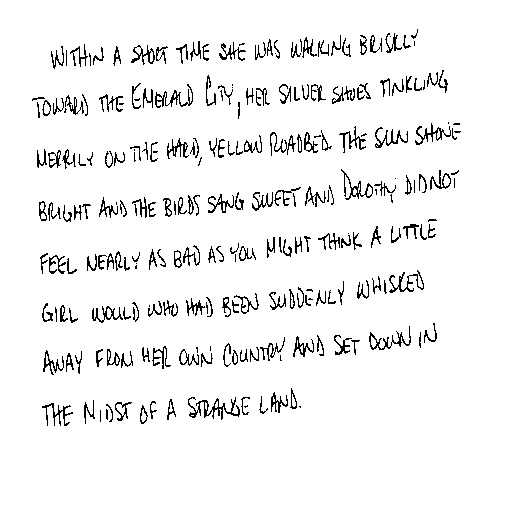 WITHIN A SHORT TIME SHE WAS WALKING BRISKLY
TOWARD THE EMERALD CITY, HER SILVER SHOES TINKLING
MERRILY ON THE HARD, YELLOW ROADBED. THE SUN SHONE
BRIGHT AND THE BIRDS SANG SWEET AND DOROTHY DID NOT
FEEL NEARLY AS BAD AS YOU MIGHT THINK A LITTLE
GIRL WOULD WHO HAD BEEN SUDDENLY WHISKED
AWAY FROM HER OWN COUNTRY AND SET DOWN IN
THE MIDST OF A STRANGE LAND.